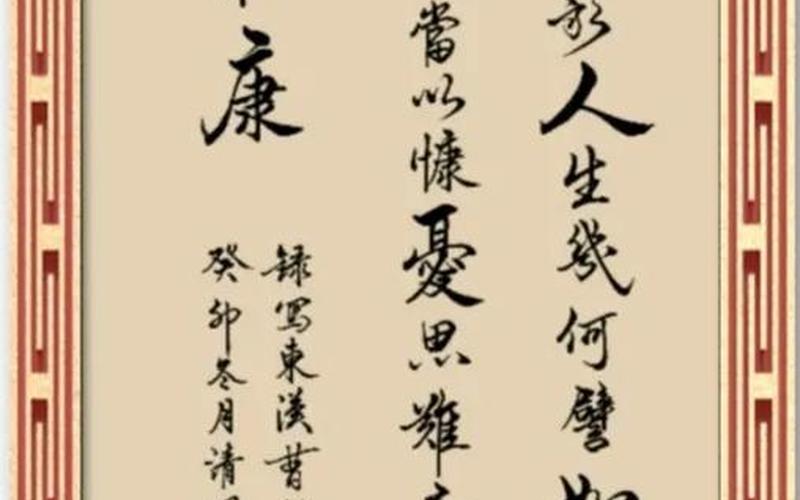 人生幾何譬
當以慷憂思難
康
録寫東漢曹
癸卯冬月清